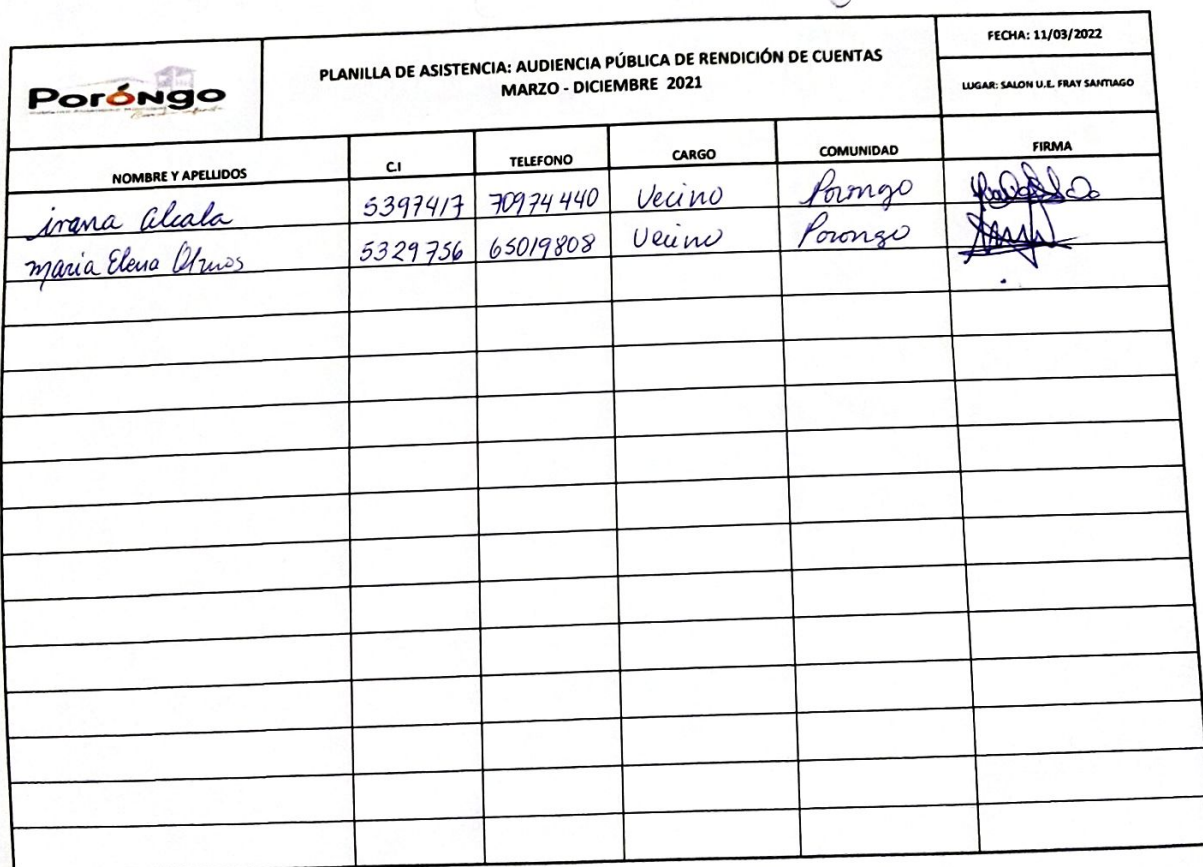 Poróngo
PLANILLA DE ASISTENCIA: AUDIENCIA PÚBLICA DE RENDICIÓN DE CUENTAS
MARZO - DICIEMBRE 2021
FECHA: 11/03/2022
LUGAR: SALON U.E. FRAY SANTIAGO
NOMBRE Y APELLIDOS C.I TELEFONO CARGO COMUNIDAD FIRMA
ivana alcala 5397417 70974440 Vecino Porongo
maria Elena Olmos 5329756 65019808 Vecino Porongo